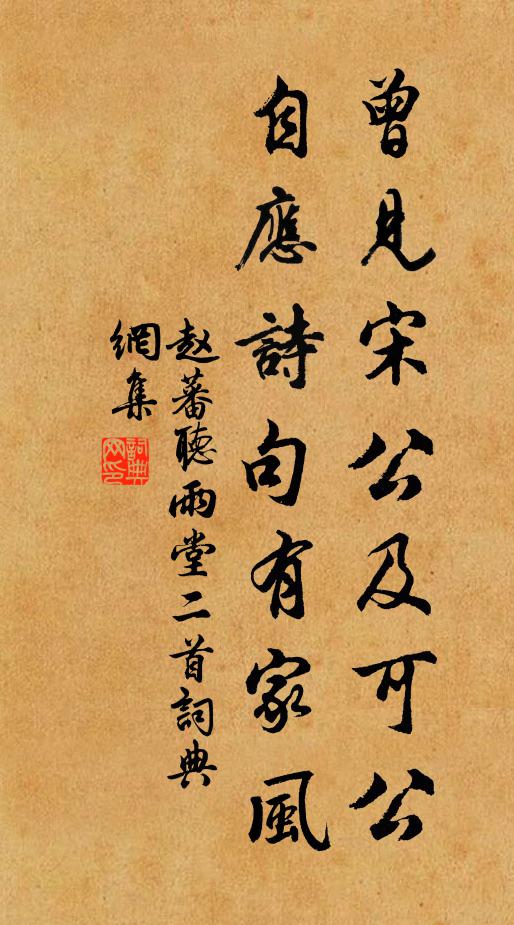 曾見宋公及可公
自應詩句有家風
赵蕃聽雨堂二首詞典
網集
詞典
网印